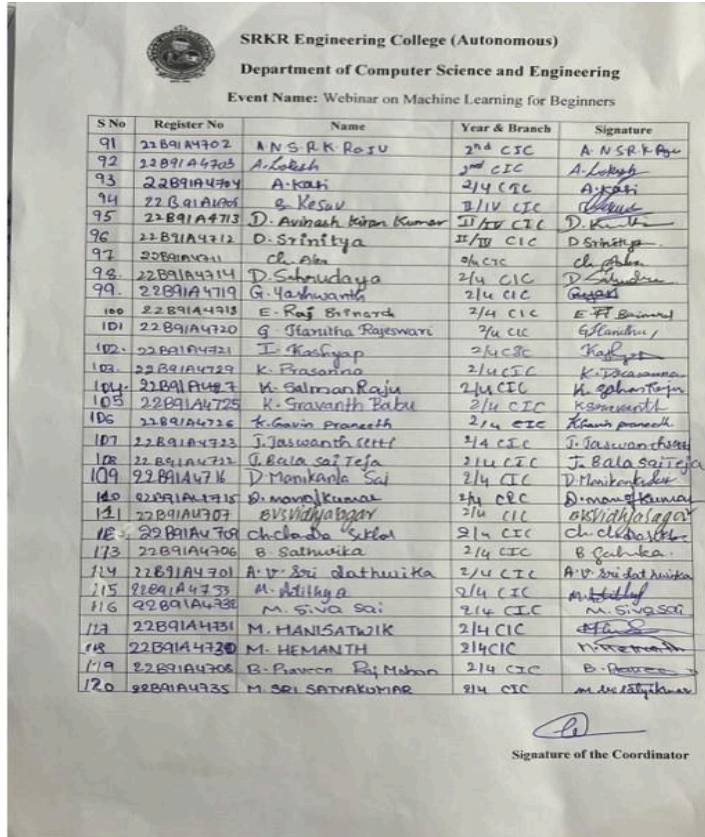 SRKR Engineering College (Autonomous)
Department of Computer Science and Engineering
Event Name: Webinar on Machine Learning for Beginners
S No Register No Name Year & Branch Signature
91 22B91A4702 A.N.S.R.K.Raju 2nd CIC A.N.S.R.K.Raju
92 22B91A4703 A.Lokesh 2nd CIC A.Lokesh
93 22B91A4704 A.Kasi 2/4 CIC A.Kasi
94 22B91A4705 Kesav II/IV CIC
95 22B91A4713 D. Avinash Kiran Kumar II/IV CIC D.
96 22B91A4712 D. Srinitya II/IV CIC D Srinitya
97 22B91A4711 Ch. 2/4 CIC Ch.
98. 22B91A4714 D. Sahrudaya 2/4 CIC D
99. 22B91A4719 G. Yashwanth 2/4 CIC
100 22B91A4715 E. Raj 2/4 CIC E
101 22B91A4720 G Hanitha Rajeswari 2/4 CIC
102. 22B91A4721 I. Kashyap 2/4 CSC
103. 22B91A4729 K. Prasanna 2/4 CIC K. Prasanna
104. K. Salman Raju 2/4 CIC K.
105 22B91A4725 K. Sravanth Babu 2/4 CIC K Sravanth
106 22B91A4726 K. Gavin Praneeth 2/4 CIC K Gavin praneeth
107 22B91A4723 J. Jaswanth 2/4 CIC J. Jaswanth
108 22B91A4722 J. Bala Sai Teja 2/4 CIC J. Bala Sai Teja
109 22B91A4716 D Manikanta Sai 2/4 CIC D.
110 D. manoj kumar 2/4 CIC D. manoj kumar
111 22B91A4707 BVSVidhjasagar 2/4 CIC BVSVidhjasagar
22B91A4709 2/4 CIC
113 22B91A4706 B. Sathwika 2/4 CIC B
114 22B91A4701 A.V. Sri Sathwika 2/4 CIC A.V. Sri Sathwika
115 22B91A4733 M. Adithya 2/4 CIC
116 M. Siva Sai 2/4 CIC M. Siva sai
117 22B91A4731 M. HANISATWIK 2/4 CIC
118 22B91A4730 M. HEMANTH 2/4CIC M. Hemanth
119 22B91A4708 B. Praveen Raj Mohan 2/4 CIC B. Praveen
120 22B91A4735 M. SRI SATYAKUMAR 2/4 CIC
Signature of the Coordinator